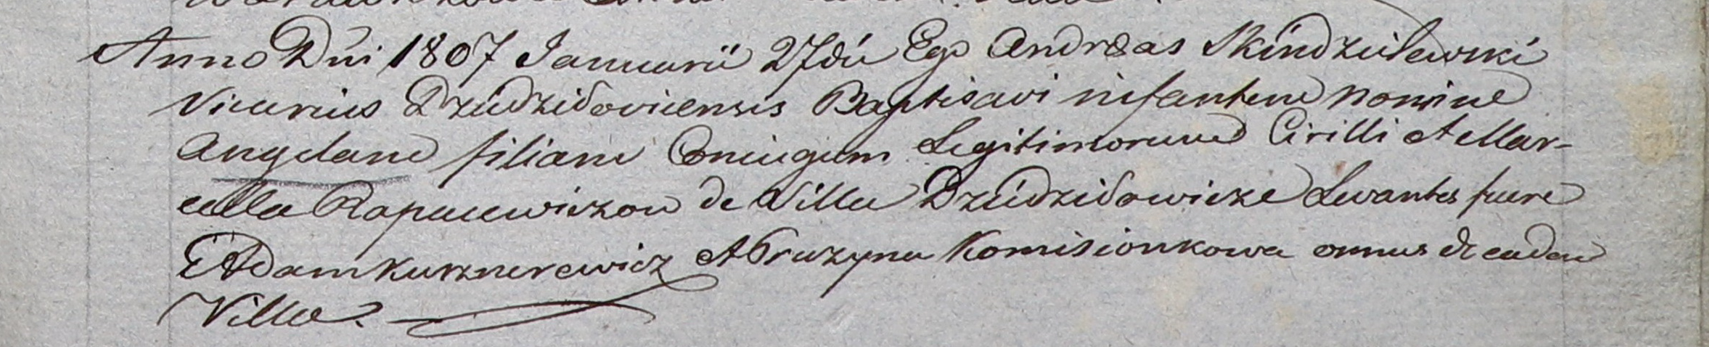 Anno Dni 1807 Januarii 27 dii Ego Andreas Skindzielewski
Vicarius Dziudzidovicensis Baptisavi infantem nomine
Angelam filiam Coniugum Legitimorum Cirilli et Mar-
cella Rapacewiczow de Villa Dziudzidowicze Levantes fuere
Adam Kusznerewicz et Pruzyna Komisionkowa omnes de eadem
Villa.